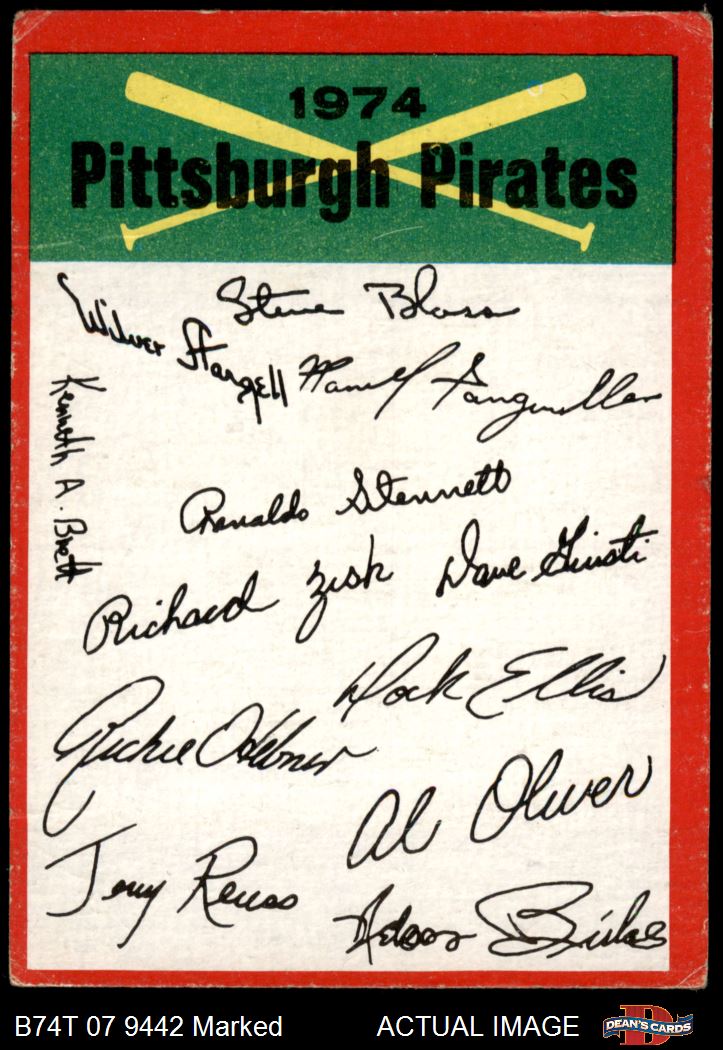 1974
Pittsburgh Pirates
Steve Blass
Wilver Stargell
Manuel Sanguillen
Kenneth A. Brett
Renaldo Stennett
Richard Zisk
Dave Giusti
Dock Ellis
Richie Hebner
Al Oliver
Jerry Reuss
B74T 07 9442 Marked
ACTUAL IMAGE
D
DEAN'S CARDS